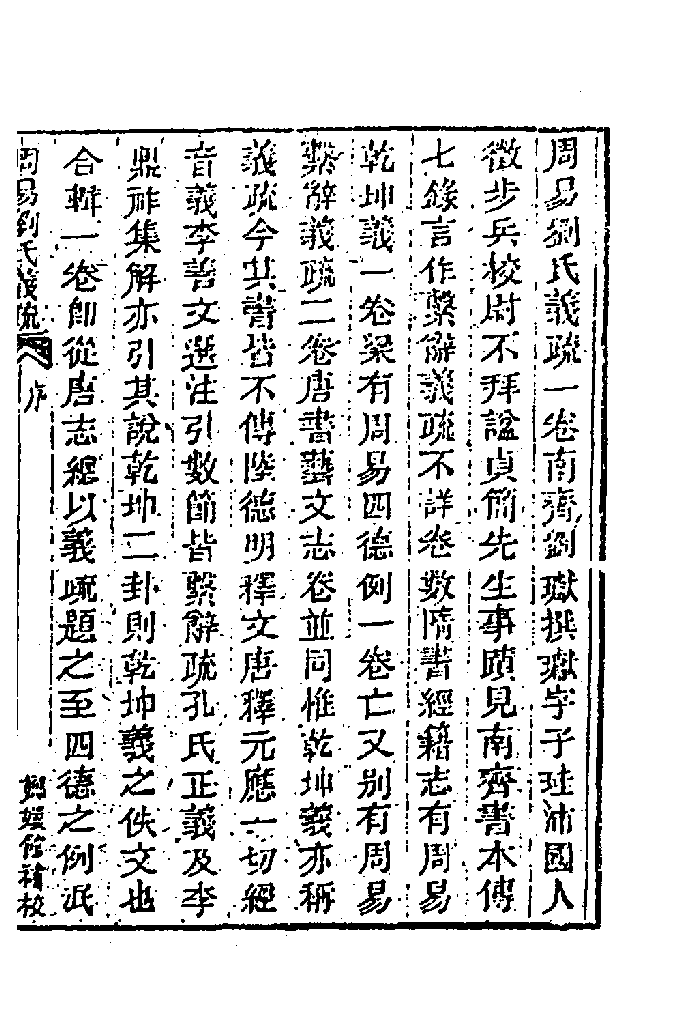 周易劉氏義疏一卷南齊劉瓛撰瓛字子珪沛國人
徵步兵校尉不拜諡貞簡先生事蹟見南齊書本傳
七錄言作繫辭義疏不詳卷數隋書經籍志有周易
乾坤義一卷梁有周易四德例一卷亡又別有周易
繫辭義疏二卷唐書藝文志卷並同惟乾坤義亦稱
義疏今其書皆不傳陸德明釋文唐釋元應一切經
音義李善文選注引數節皆繫辭疏孔氏正義及李
鼎祚集解亦引其說乾坤二卦則乾坤義之佚文也
合輯一卷卽從唐志總以義疏題之至四德之例泯
周易劉氏義疏 序 嫏嬛館補校